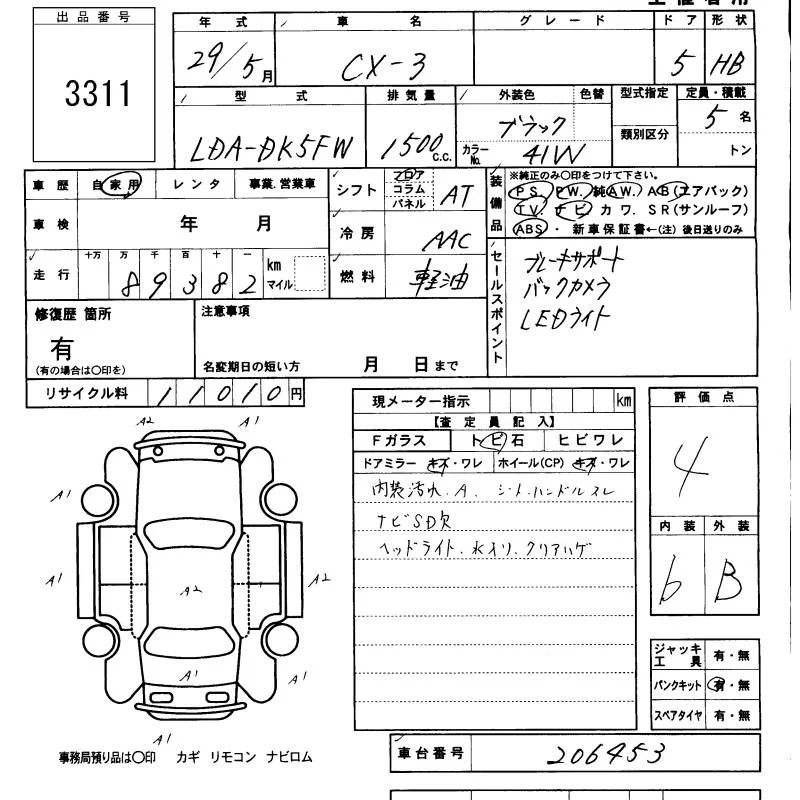 出品番号
3311
年式 車名 グレード ドア 形状
29/5月 CX-3 5 HB
型式 排気量 外装色 色替 型式指定 定員・積載
LDA-DK5FW 1500c.c. ブラック 5名
カラーNo. 41W 類別区分 トン
車歴 自家用 レンタ 事業・営業車
車検 年 月
走行 十万 万 千 百 十 一 km マイル
89382
シフト フロア コラム パネル AT
冷房 AAC
燃料 軽油
装備品
※純正のみ○印をつけて下さい。
PS. PW. 純AW. AB(エアバック)
TV. ナビ カワ. SR(サンルーフ)
ABS・新車保証書←(注)後日送りのみ
セールスポイント
ブレーキサポート
バックカメラ
LEDライト
修復歴 箇所
有
(有の場合は○印を)
注意事項
名変期日の短い方 月 日まで
リサイクル料 11010円
現メーター指示 km
【査定員記入】
Fガラス トビ石 ヒビワレ
ドアミラー キズ・ワレ ホイール(CP) キズ・ワレ
内装汚れ.A. シート.ハンドルスレ
ナビSD欠
ヘッドライト.水入リ.クリアハゲ
評価点
4
内装 外装
6 B
ジャッキ工具 有・無
パンクキット 有・無
スペアタイヤ 有・無
A2 A1
A1 A1
A1 A2 A2
A1
A1
事務局預り品は○印 カギ リモコン ナビロム
車台番号 206453